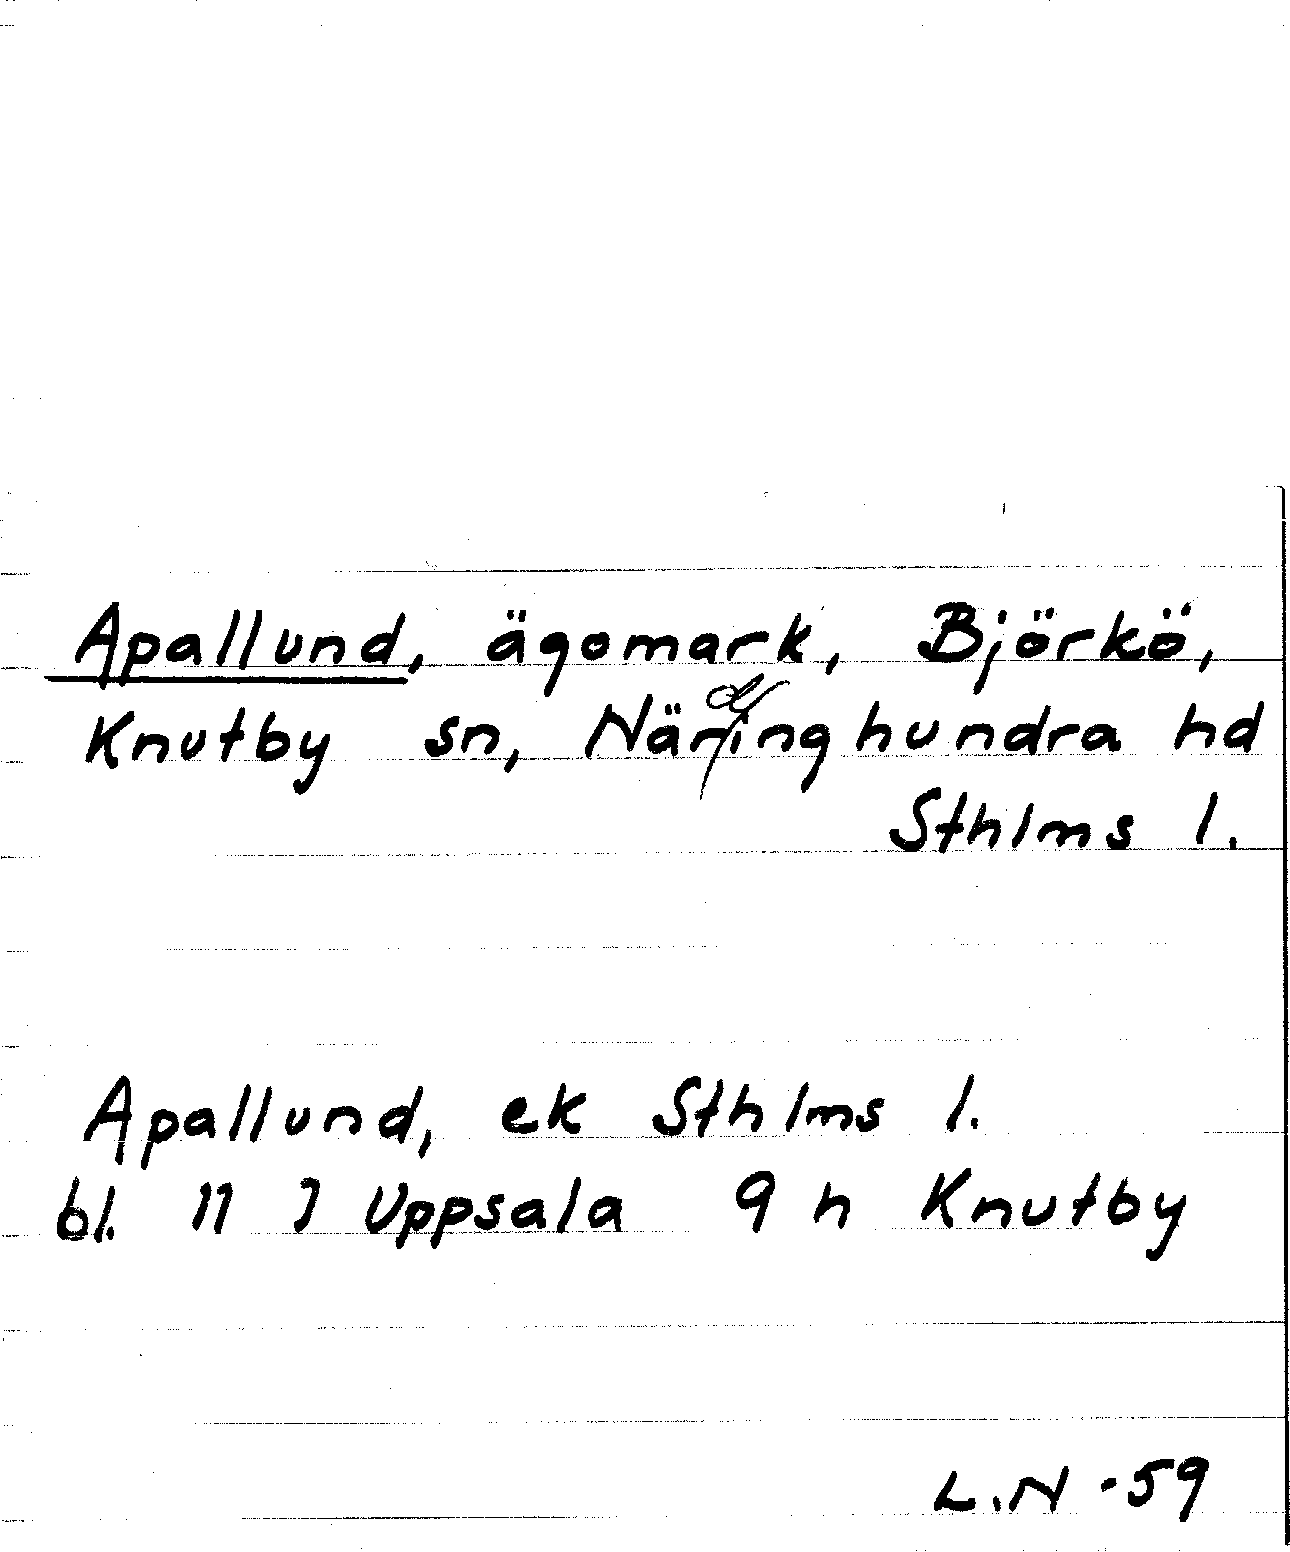 Apallund, ägomark, Björkö,
Knutby sn, Närdinghundra hd
Sthlms l.
Apallund, ek Sthlms l.
bl. 11 J Uppsala 9 h Knutby
L.N -59